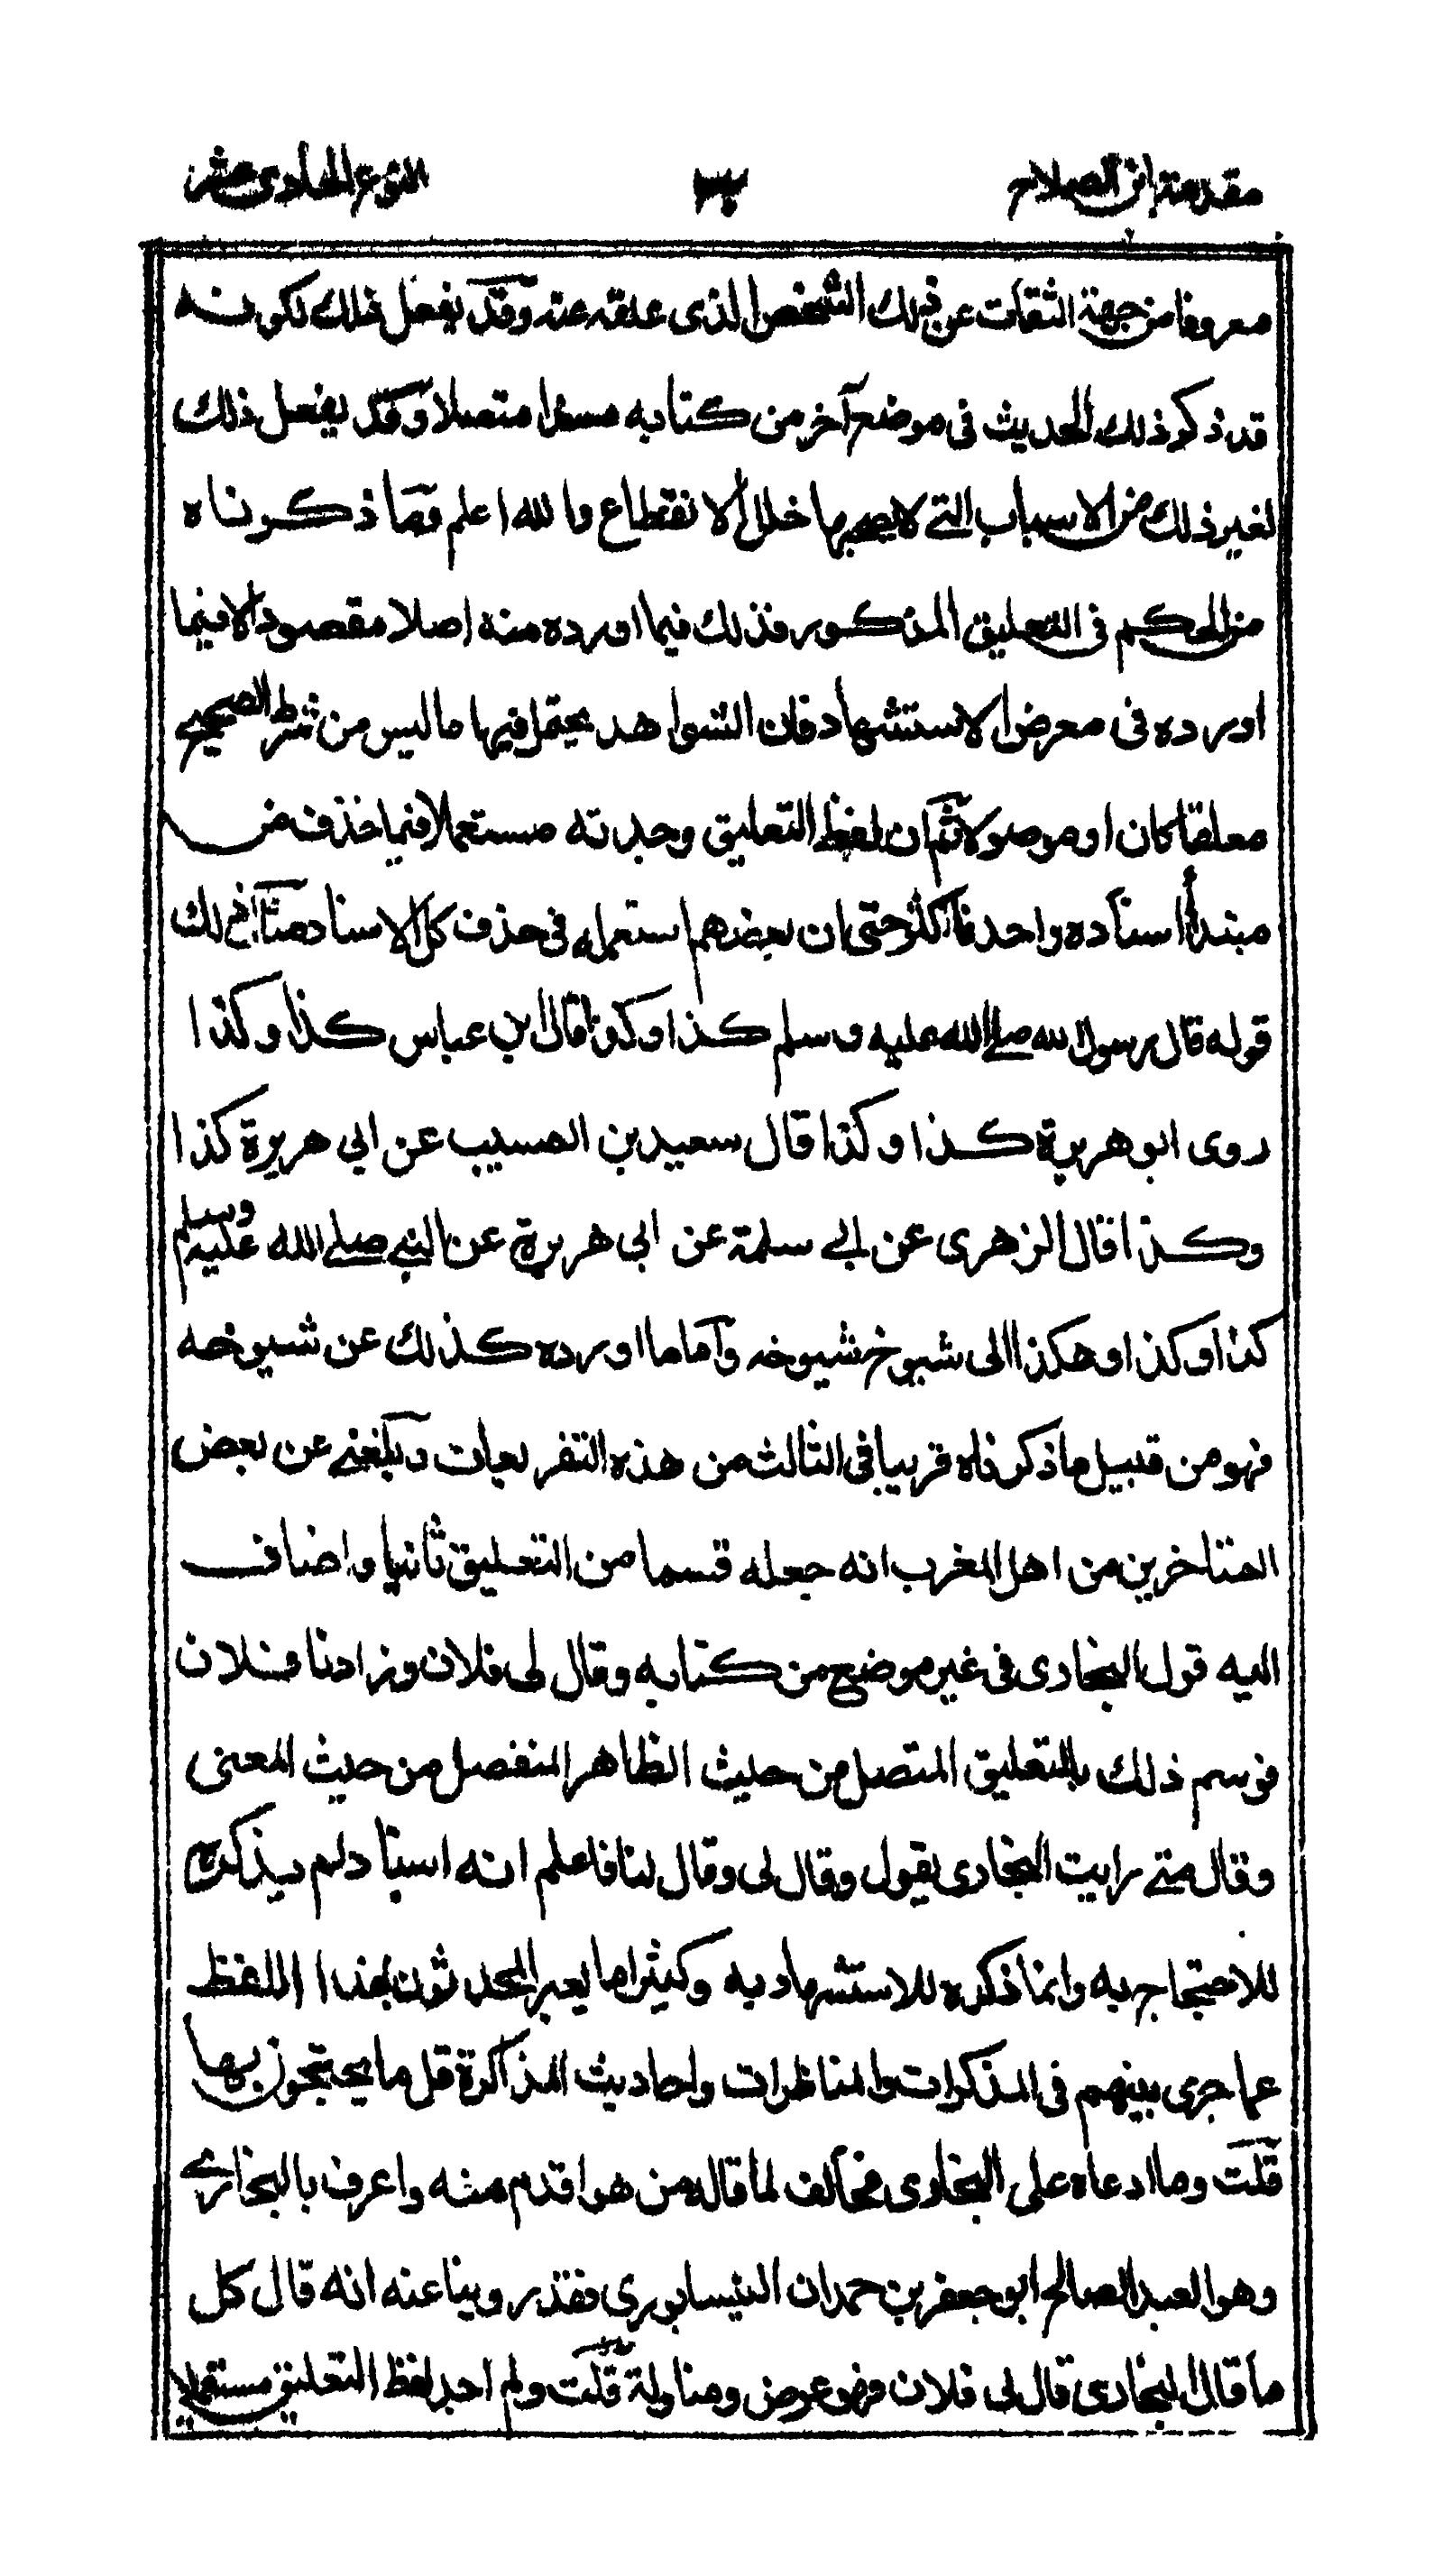 مقدمة ابن الصلاح ٣٠ النوع الحادى عشر
معروفا من جهة الثقات عن ذلك الشخص الذى علقه عنه وقد يفعل ذلك لكونه
قد ذكر ذلك الحديث فى موضع آخر من كتابه مسندا متصلا وقد يفعل ذلك
لغير ذلك من الاسباب التے لا يصحبها خلل الانقطاع والله اعلم وما ذكرناه
من الحكم فى التعليق المذكور فذلك فيما اورده منه اصلا مقصودا لا فيما
اورده فى معرض الاستشهاد فان الشواهد يحتمل فيها ما ليس من شرط الصحيح
معلقا كان او موصولا ثم ان لفظ التعليق وجدته مستعملا فيما حذف من
مبتدأ اسناده واحد فاكثر حتى ان بعضهم استعمله فى حذف كل الاسناد مثال ذلك
قوله قال رسول الله صلے الله عليه وسلم كذا وكذا قال ابن عباس كذا وكذا
روى ابو هريرة كذا وكذا قال سعيد بن المسيب عن ابي هريرة كذا
وكذا قال الزهرى عن ابے سلمة عن ابي هريرة عن النبے صلے الله عليه وسلم
كذا وكذا وهكذا الى شيوخ شيوخه واما ما اورده كذلك عن شيوخه
فهو من قبيل ما ذكرناه قريبا فى الثالث من هذه التفريعات وبلغنے عن بعض
المتاخرين من اهل المغرب انه جعله قسما من التعليق ثانيا واضاف
اليه قول البخارى فى غير موضع من كتابه وقال لى فلان وزادنا فلان
فوسم ذلك بالتعليق المتصل من حيث الظاهر المنفصل من حيث المعنى
وقال متے رايت البخارى يقول وقال لى وقال لنا فاعلم انه اسناد لم يذكره
للاحتجاج به وانما ذكره للاستشهاد به وكثيرا ما يعبر المحدثون بهذا اللفظ
عما جرى بينهم فى المذكرات والمناظرات واحاديث المذاكرة قل ما يحتجون بها
قلت وما ادعاه على البخارى مخالف لما قاله من هو اقدم منه واعرف بالبخارے
وهو العبد الصالح ابو جعفر بن حمدان النيسابوري فقد روينا عنه انه قال كل
ما قال البخارى قال لى فلان فهو عرض ومناولة قلت ولم اجد لفظ التعليق مستعملا